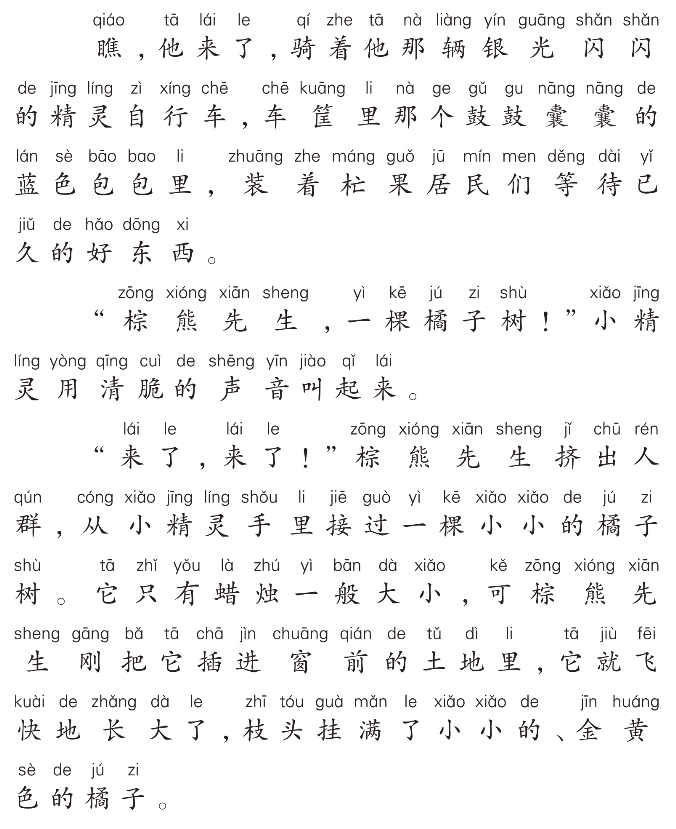 qiáo tā lái le qí zhe tā nà liàng yín guāng shǎn shǎn
瞧，他来了，骑着他那辆银光闪闪
de jīng líng zì xíng chē chē kuāng li nà ge gǔ gu nāng nāng de
的精灵自行车，车筐里那个鼓鼓囊囊的
lán sè bāo bao li zhuāng zhe máng guǒ jū mín men děng dài yǐ
蓝色包包里，装着杧果居民们等待已
jiǔ de hǎo dōng xi
久的好东西。
zōng xióng xiān sheng yì kē jú zi shù xiǎo jīng
“棕熊先生，一棵橘子树！”小精
líng yòng qīng cuì de shēng yīn jiào qǐ lái
灵用清脆的声音叫起来。
lái le lái le zōng xióng xiān sheng jǐ chū rén
“来了，来了！”棕熊先生挤出人
qún cóng xiǎo jīng líng shǒu li jiē guò yì kē xiǎo xiǎo de jú zi
群，从小精灵手里接过一棵小小的橘子
shù tā zhǐ yǒu là zhú yì bān dà xiǎo kě zōng xióng xiān
树。它只有蜡烛一般大小，可棕熊先
sheng gāng bǎ tā chā jìn chuāng qián de tǔ dì li tā jiù fēi
生刚把它插进窗前的土地里，它就飞
kuài de zhǎng dà le zhī tóu guà mǎn le xiǎo xiǎo de jīn huáng
快地长大了，枝头挂满了小小的、金黄
sè de jú zi
色的橘子。